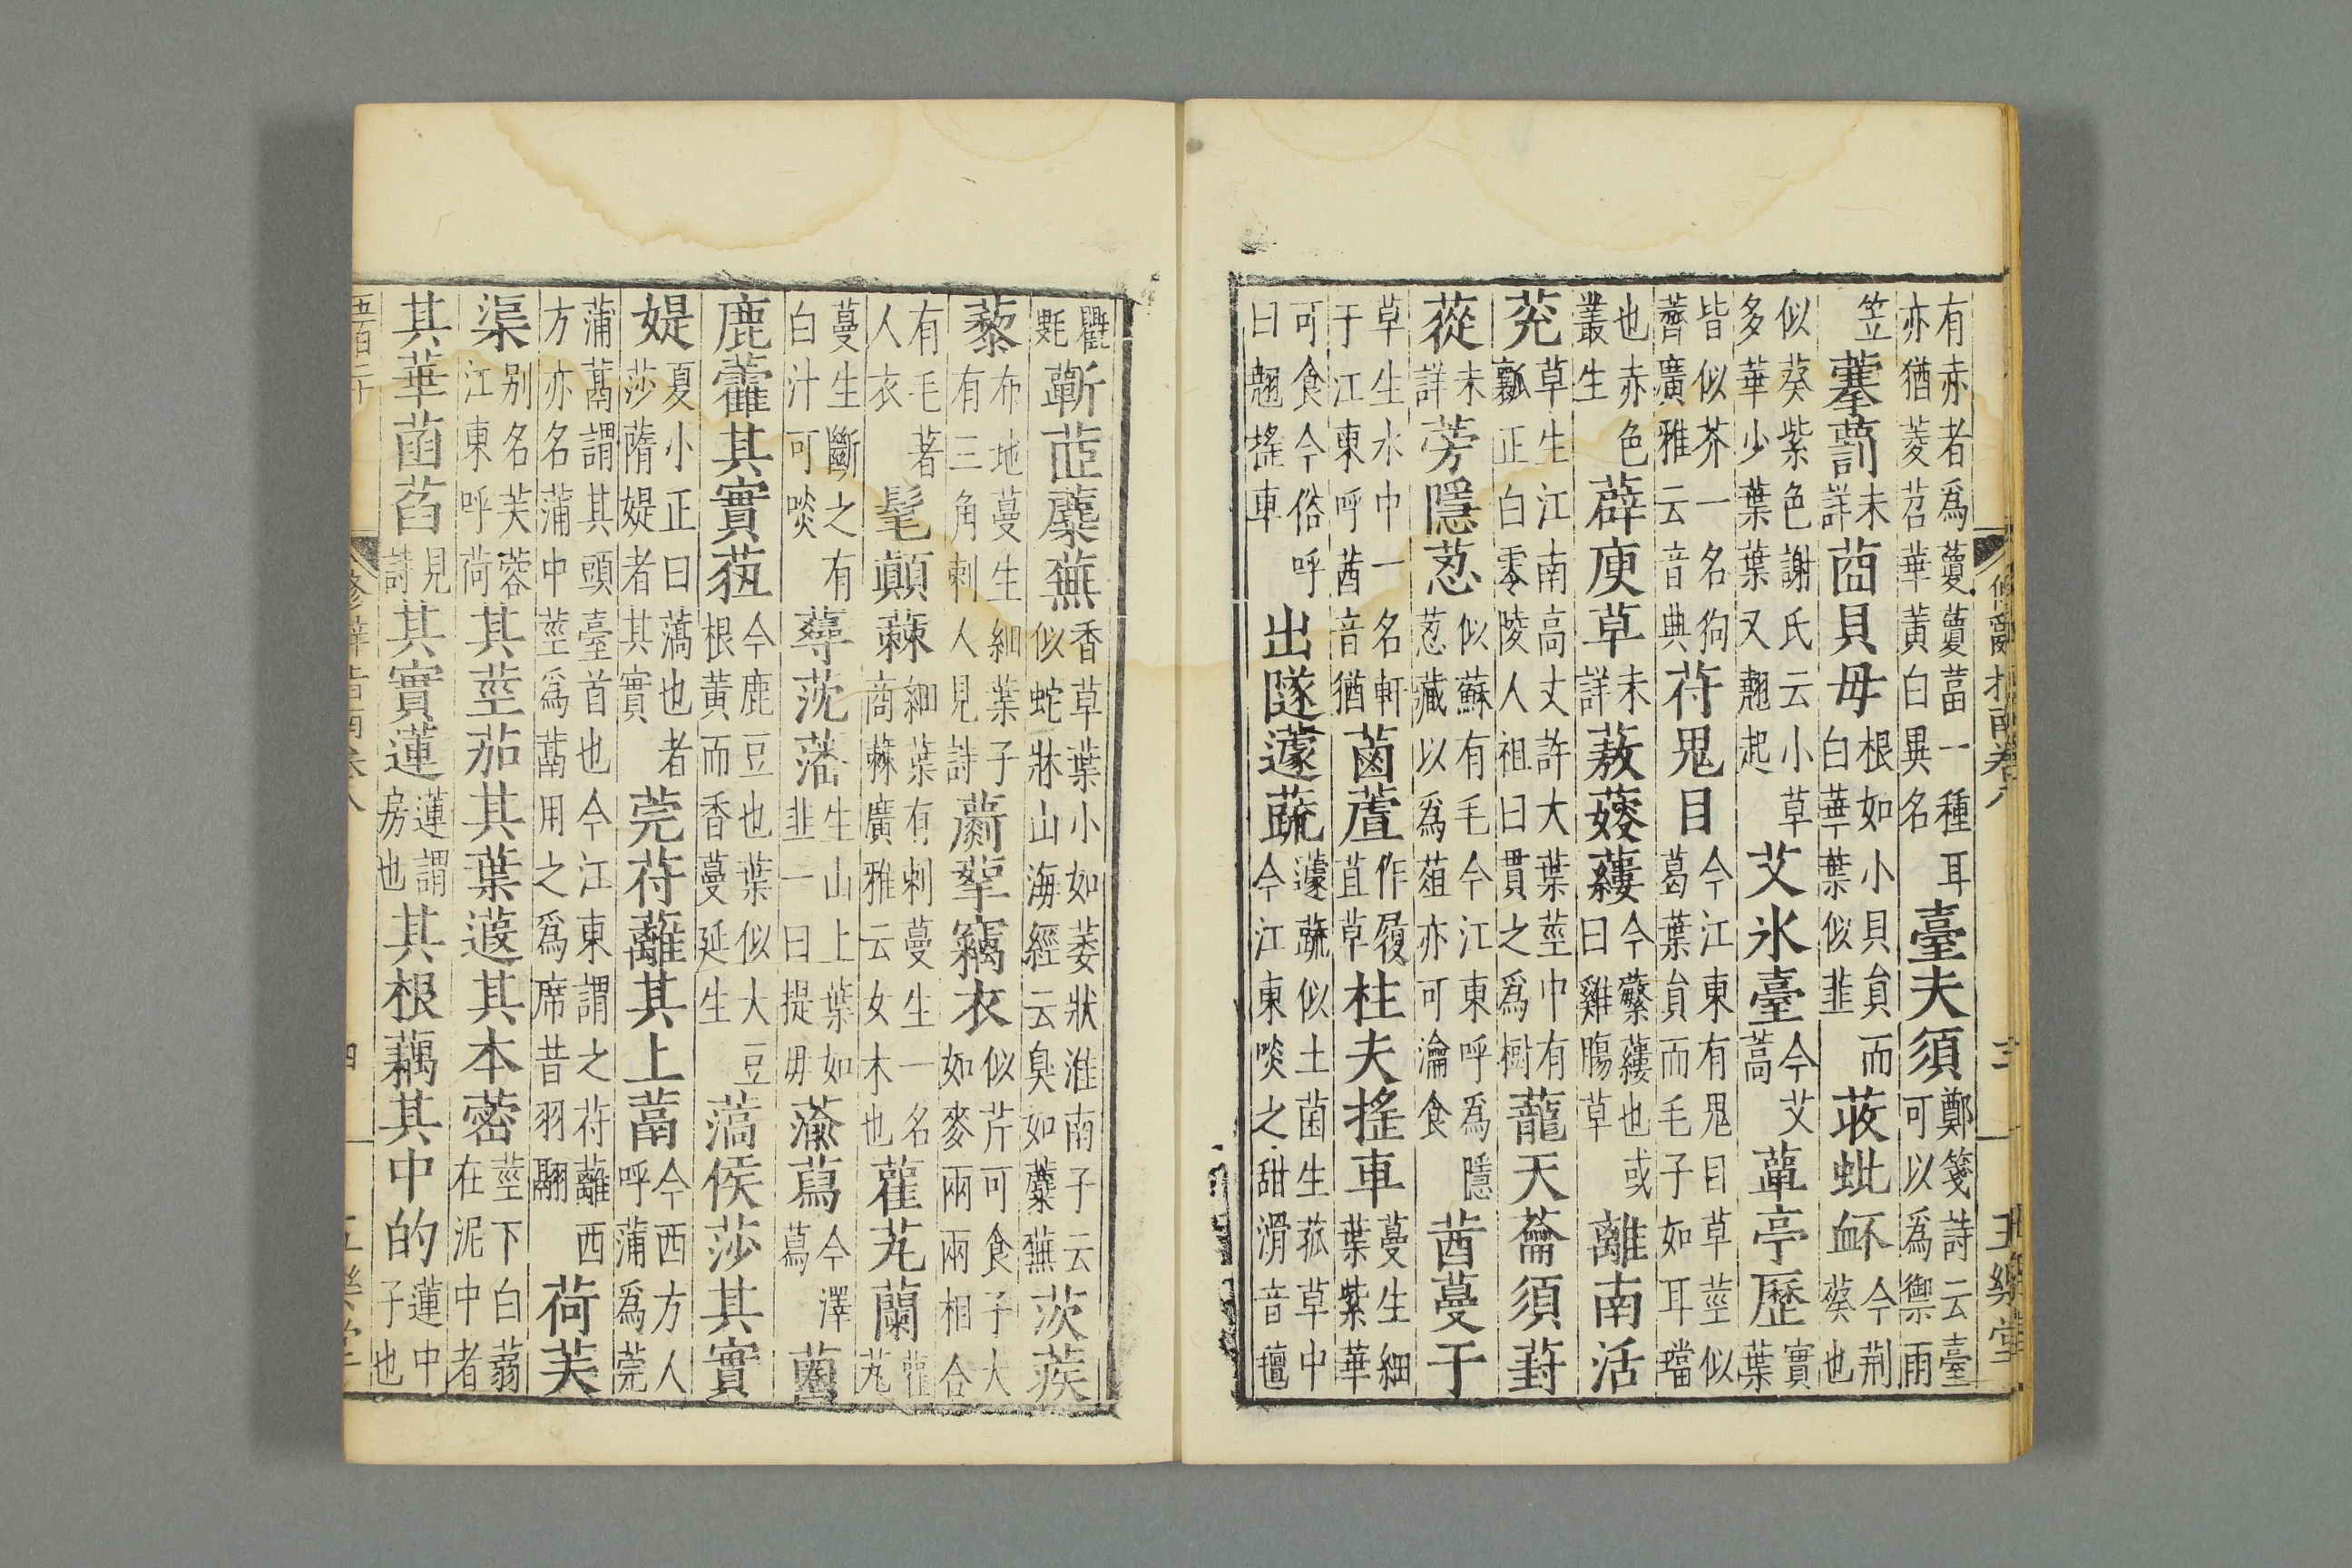 修辭指南卷八　三　五樂堂
有赤者爲藑藑葍一種耳亦猶菱苕華黃白異名臺夫須鄭箋詩云臺可以爲禦雨
笠藅未詳莔貝母根如小貝員而白華葉似韭荍蚍衃今荆葵也
似葵紫色謝氏云小草多華少葉葉又翹起艾冰臺今艾蒿蕇亭歷實葉
皆似芥一名狗薺廣雅云音典苻鬼目今江東有鬼目草莖似葛葉員而毛子如耳璫
也赤色叢生薜庾草未詳蔜䕅蔞今蘩蔞也或曰雞腸草離南活
莌草生江南高丈許大葉莖中有瓤正白零陵人祖曰貫之爲樹蘢天蘥須葑
蓯未詳蒡隱蒠似蘇有毛今江東呼爲隱蒠藏以爲葅亦可瀹食莤蔓于
草生水中一名軒于江東呼莤音猶蓾蔖作履苴草柱夫搖車蔓生細葉紫華
可食今俗呼曰翹搖車出隧蘧蔬蘧蔬似土菌生菰草中今江東啖之甜滑音
氍蘄茝蘪蕪香草葉小如萎狀淮南子云似蛇牀山海經云臭如蘪蕪茨蒺
藜布地蔓生細葉子有三角刺人見詩蘮蒘竊衣似芹可食子大如麥兩兩相合
有毛著人衣髦顛蕀細葉有刺蔓生一名商蕀廣雅云女木也雚芄蘭雚芄
蔓生斷之有白汁可啖蕁莐藩生山上葉如韭一曰提母蕍蕮今澤蕮蔨
鹿藿其實莥今鹿豆也葉似大豆根黃而香蔓延生薃侯莎其實
媞夏小正曰薃也者莎隋媞者其實莞苻蘺其上蒚今西方人呼蒲爲莞
蒲蒚謂其頭臺首也今江東謂之苻蘺西方亦名蒲中莖爲蒚用之爲席昔羽翮荷芙
渠别名芙蓉江東呼荷其莖茄其葉蕸其本蔤莖下白蒻在泥中者
其華菡萏見詩其實蓮蓮謂房也其根藕其中的蓮中子也
五百二十　修辭指南卷八　四　五樂堂